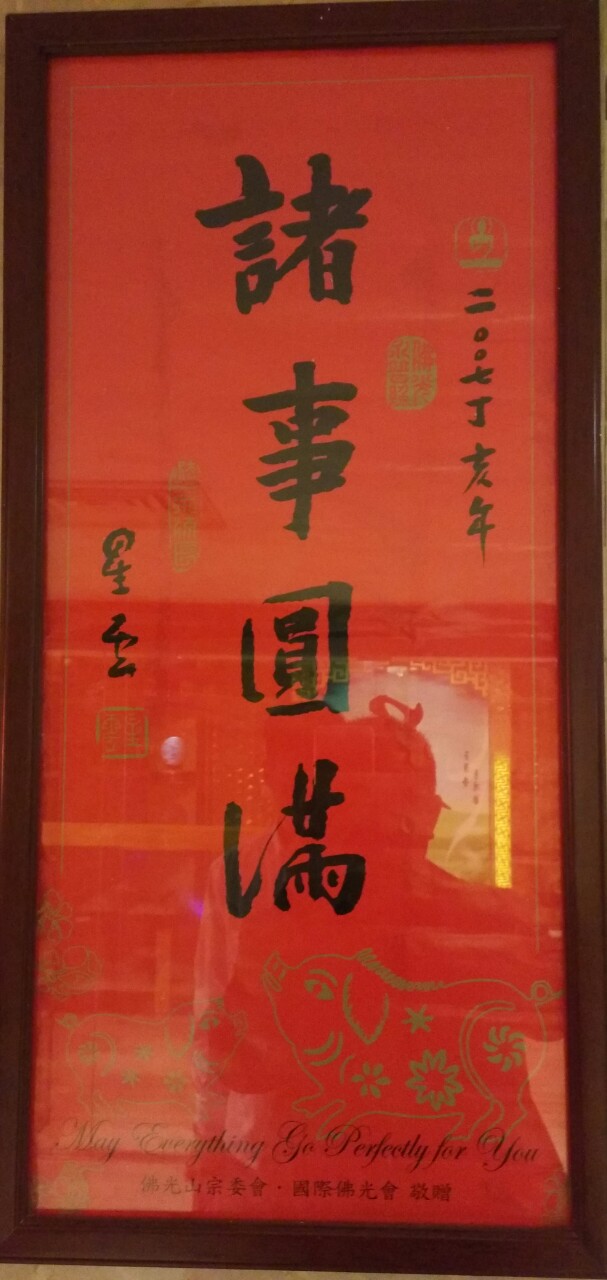 二〇〇七丁亥年
諸事圓滿
星雲
May Everything Go Perfectly for You
佛光山宗委會・國際佛光會 敬贈